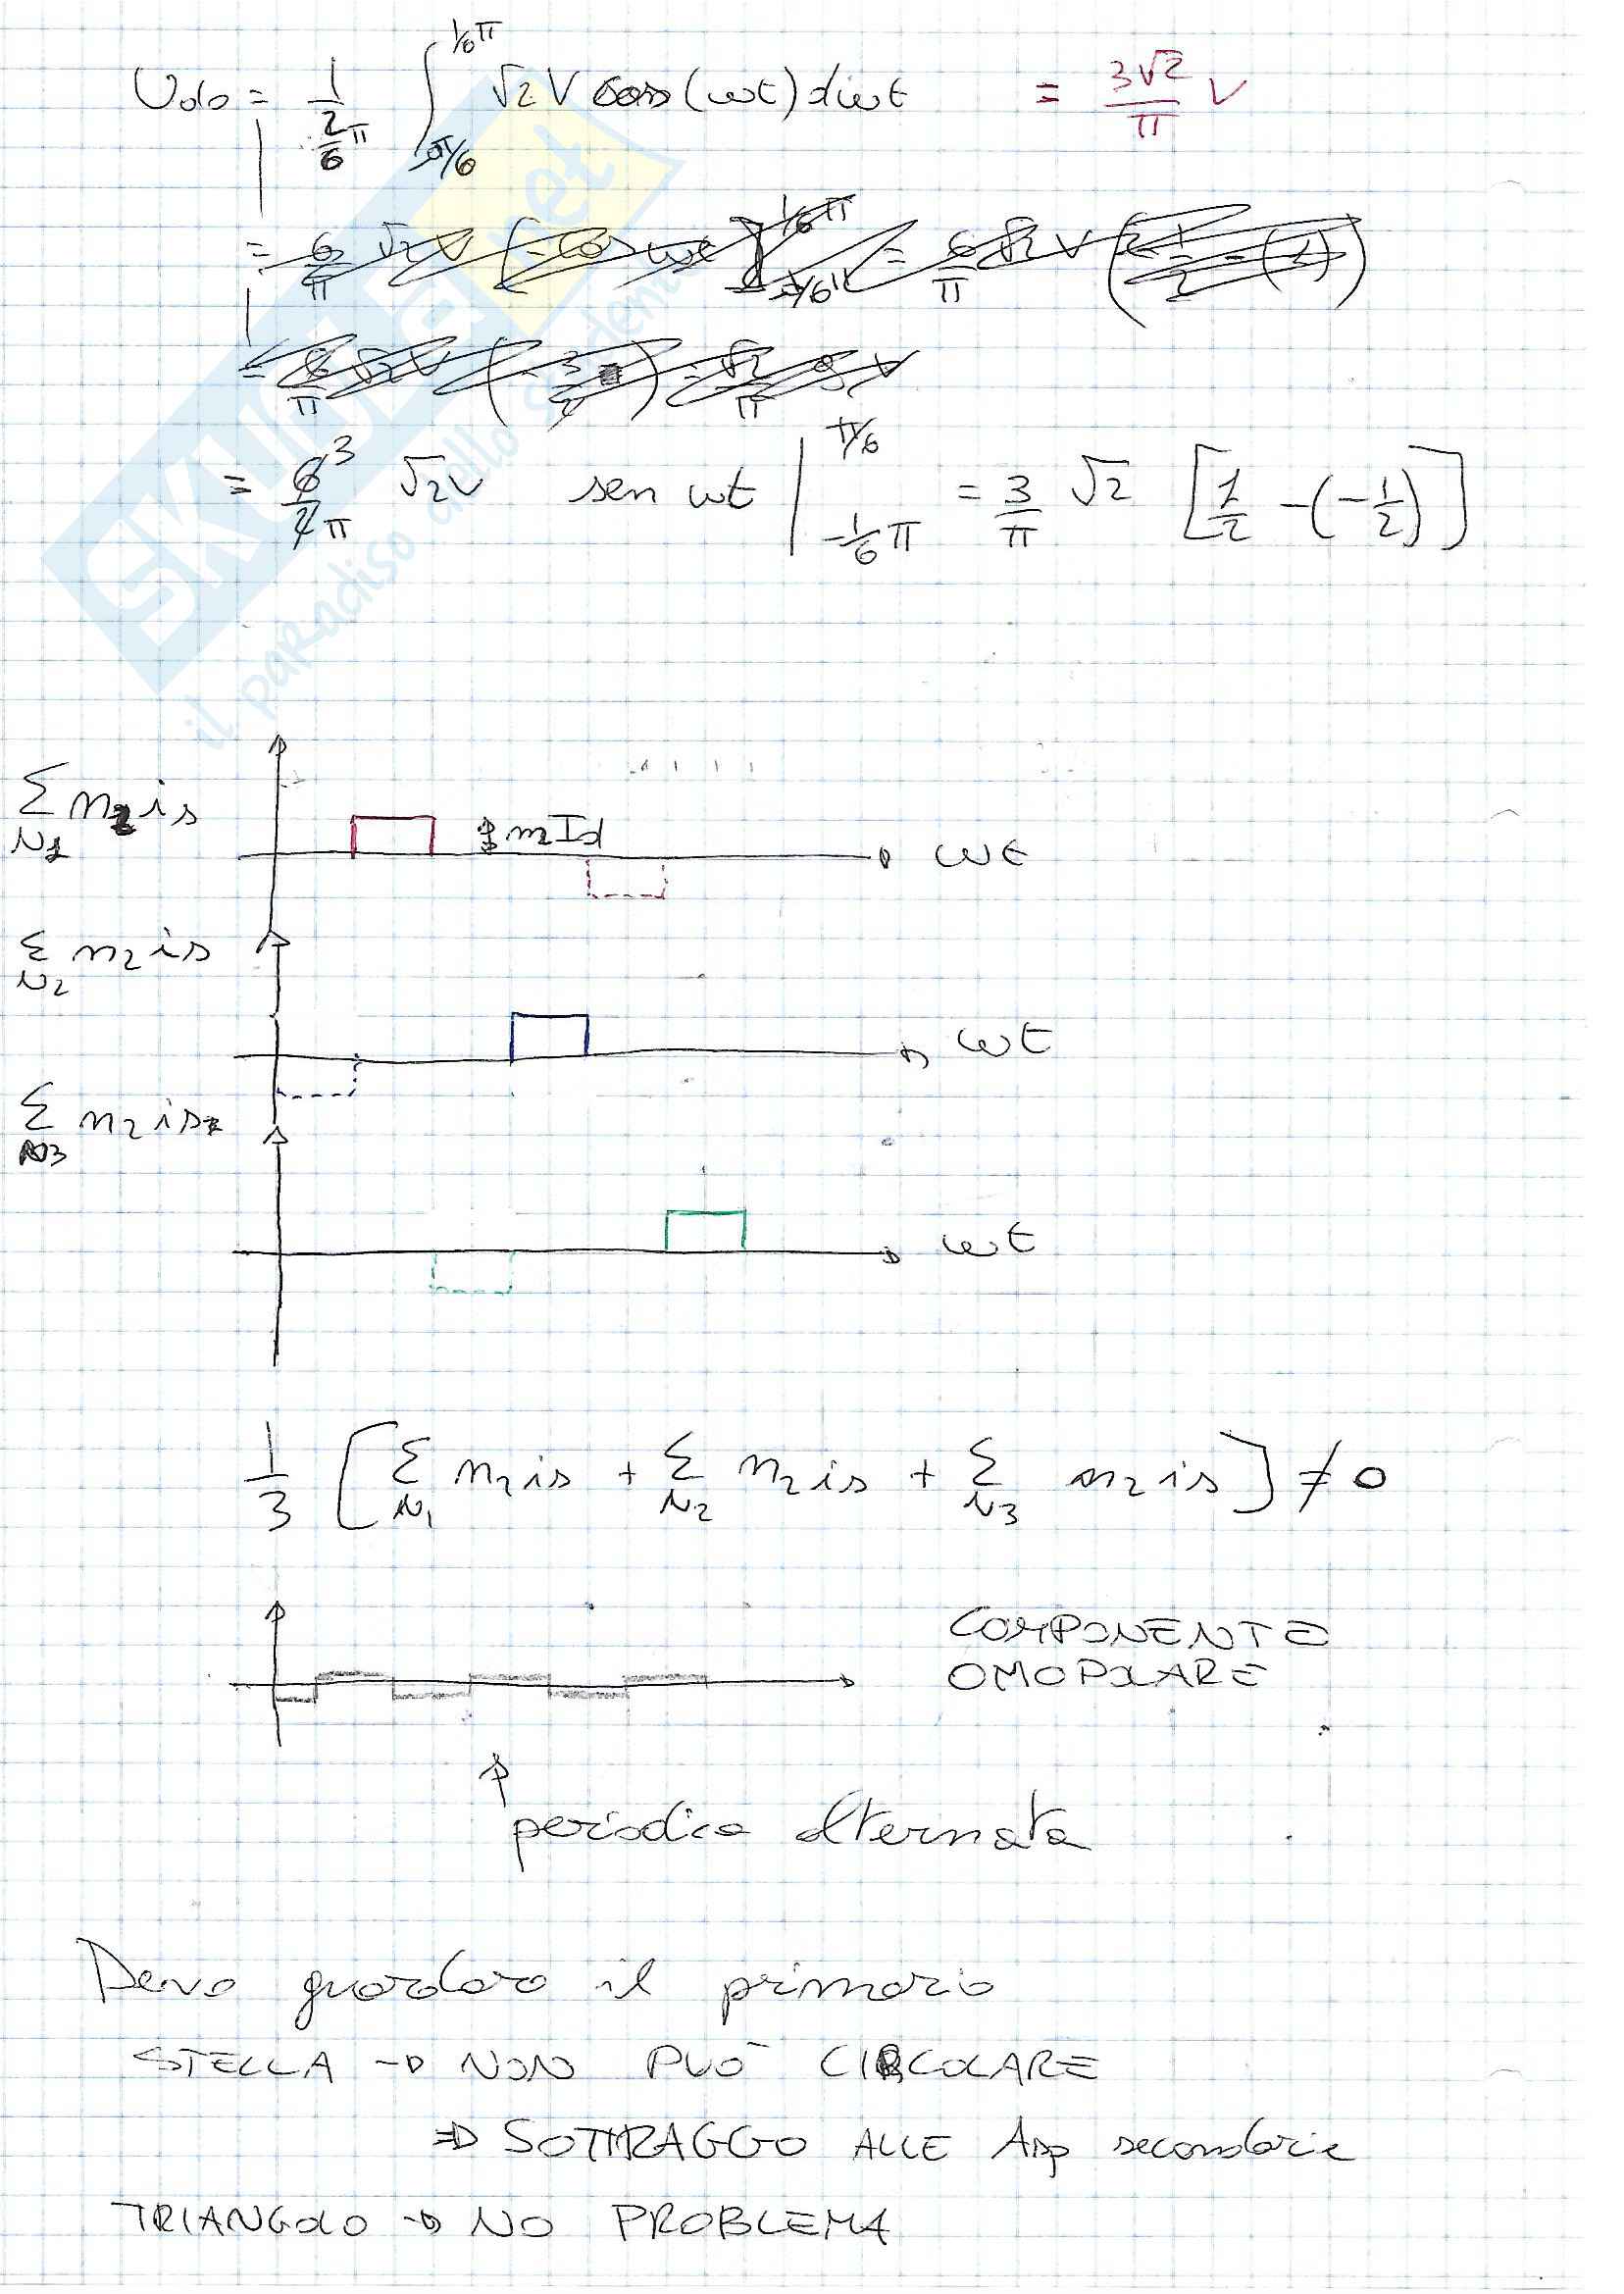 Udo = 1/(2/6 π) ∫_{-π/6}^{1/6π} √2 V cos(ωt) dωt = 3√2/π V
= 6/2π 3 √2 V sen ωt |_{-1/6π}^{π/6} = 3/π √2 [1/2 - (-1/2)]
Σ n2 is
N1
n2 Id
ωt
Σ n2 is
N2
ωt
Σ n2 is
N3
ωt
1/3 [Σ_{N1} n2 is + Σ_{N2} n2 is + Σ_{N3} n2 is] ≠ 0
COMPONENTE
OMOPOLARE
periodica alternata
Devo guardare il primario
STELLA → NON PUÒ CIRCOLARE
⇒ SOTTRAGGO ALLE Asp secondarie
TRIANGOLO → NO PROBLEMA
SKUOLA.net
il paradiso dello studente